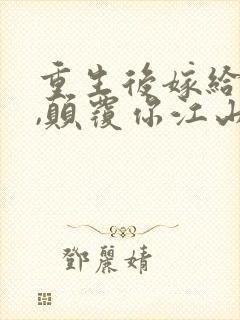 重生後嫁給
,顛覆你江山
鄧麗婧